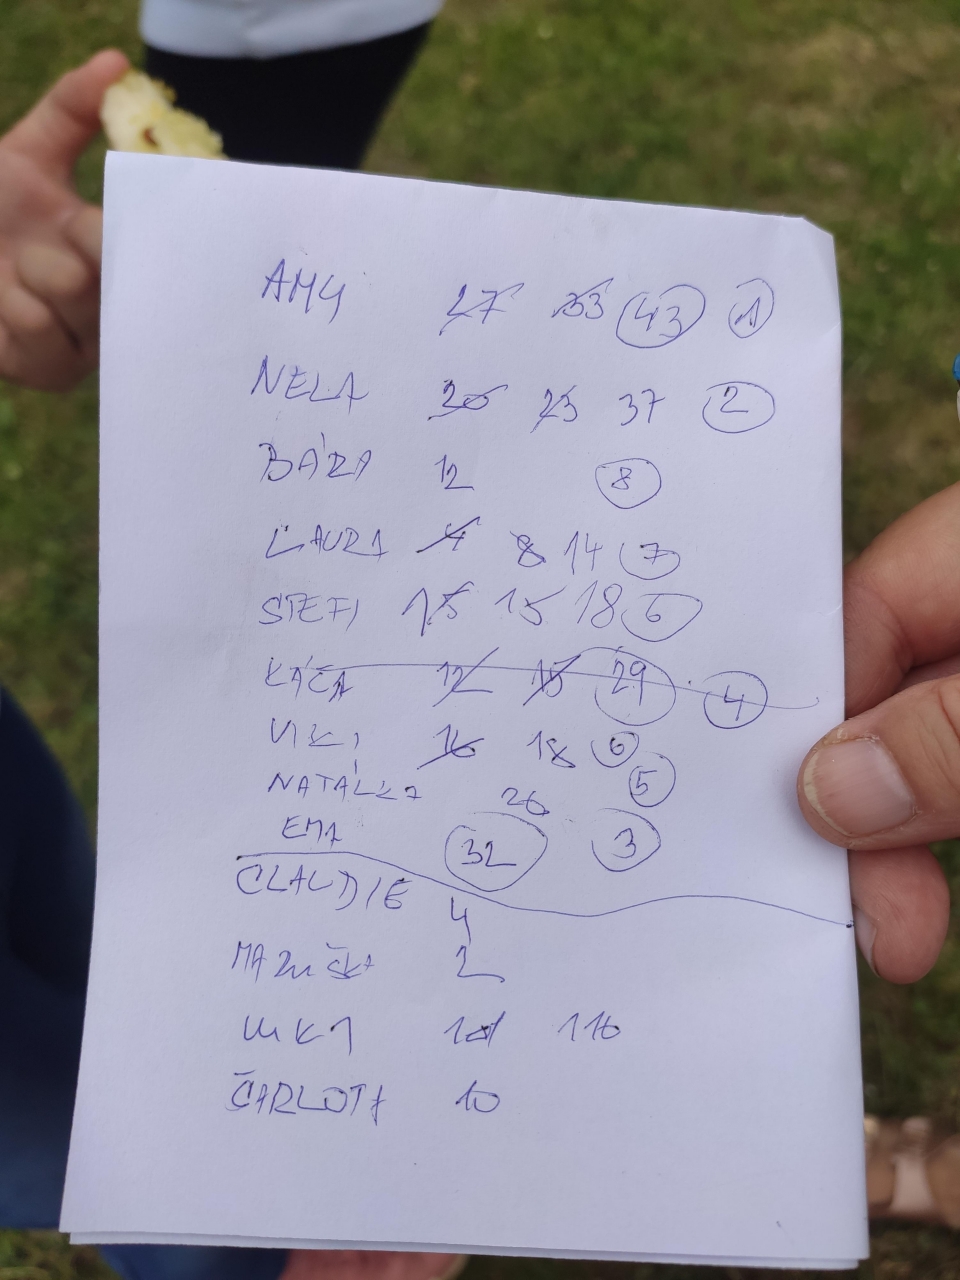 AMY 27 33 43 1
NELA 20 23 37 2
BÁRA 12 8
LAURA 4 8 14 7
STEFI 15 15 18 6
KÁČA 12 15 29 4
VIKI 16 18 6
NATÁLKA 26 5
EMA 32 3
CLAUDIE 4
MARUŠKA 2
116
ČARLOTA 10